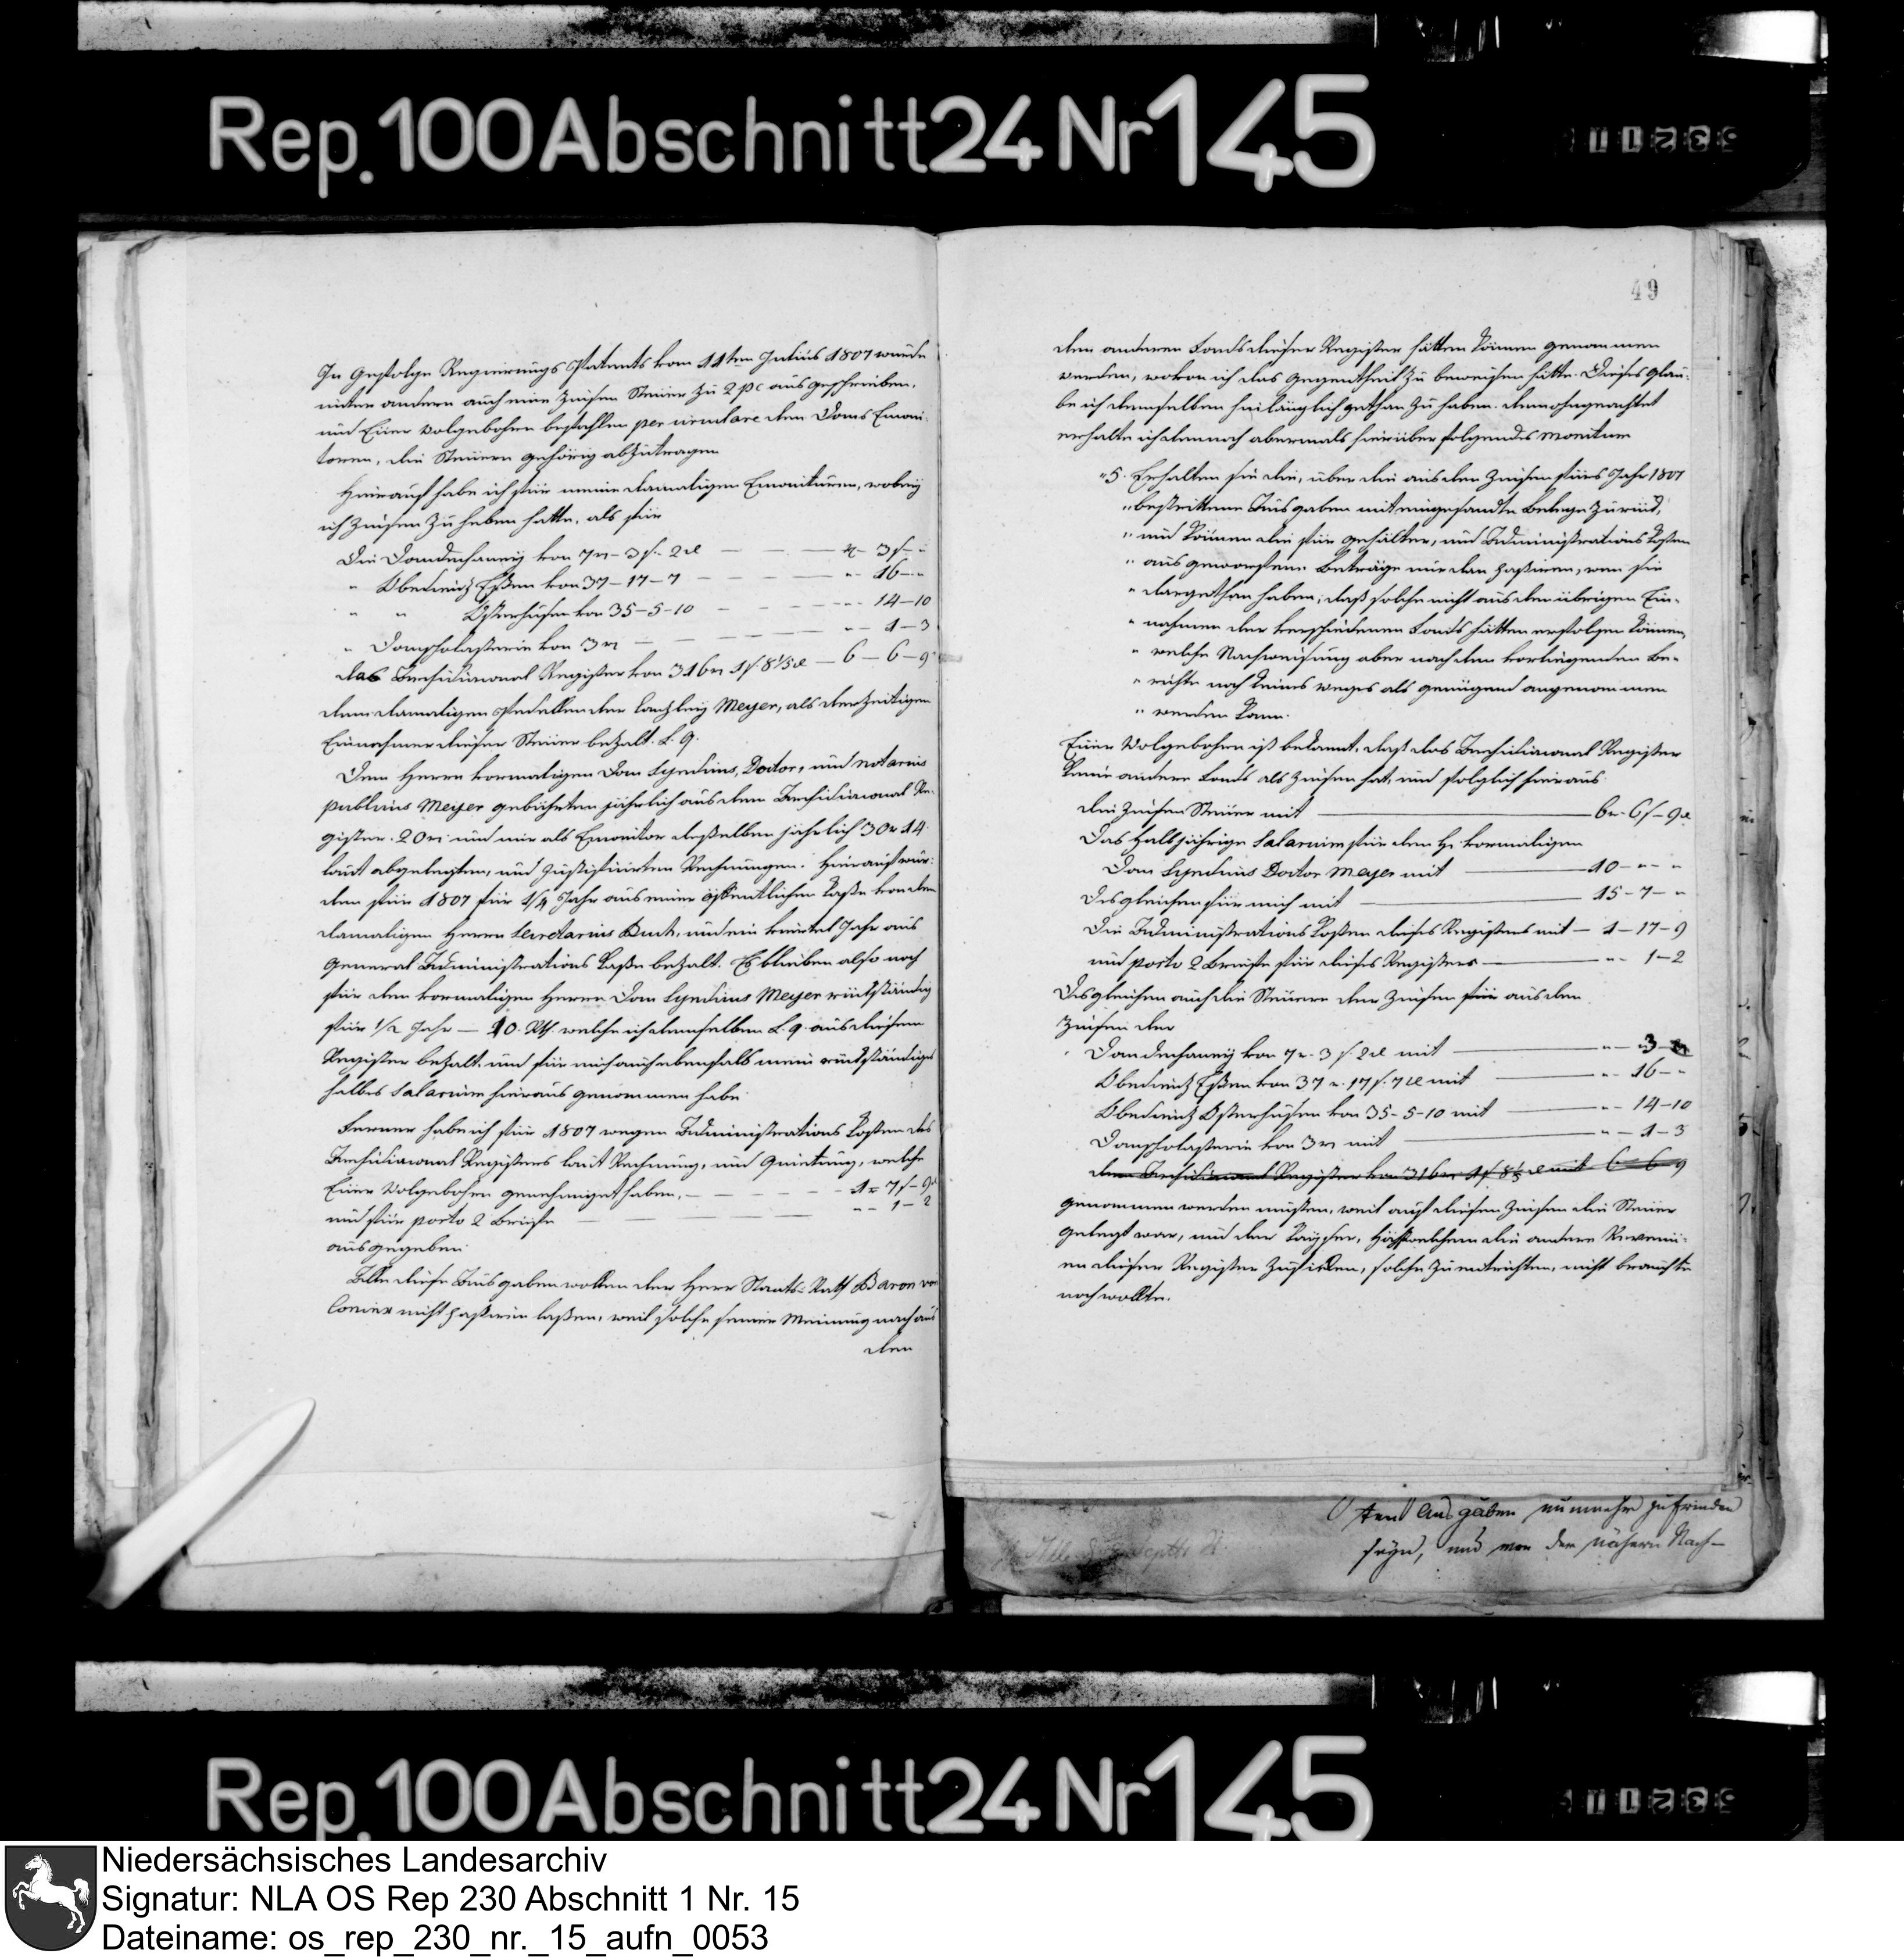 Rep. 100 Abschnitt 24 Nr 145
49
In Gefolge Regierungs Patents vom 11ten Julius 1807 wurde
unter andern auch eine Zinsen Steuer zu 2 pC ausgeschrieben,
und Euer Wolgebohren befahlen per circulare den Doms Emoni-
toren, die Steuern gehörig abzutragen
Hierauf habe ich für meine damaligen Emonituren, wobey
ich Zinsen zu heben hatte, als für
Die Domdechaney von 7 r – 3 ß – 2 d — 3 ß -
" Obedienz Essen von 37 – 17 – 7 — " 16 - "
" " Osterhusen von 35 – 5 – 10 — " 14 – 10
" Domscholasterie von 3 r — " 1 – 3
das Archidiaconal Register von 316 r 1 ß 8 1/3 d — 6 – 6 – 9
dem damaligen Pedellen der Canzley Meyer, als derzeitigen
Einnehmer dieser Steuer bezalt. L. q.
Dem Herrn vormaligen Dom Syndicus, Doctor, und notarius
publicus Meyer gebührten jährlich aus dem Archidiaconal Re-
gister 20 r und mir als Emonitor desselben jährlich 30 r 14
laut abgelegten, und justificirten Rechnungen. Hierauf wur-
den für 1807 für 1/4 Jahr aus einer öffentlichen Casse von dem
damaligen Herrn Secretarius Buch, und ein viertel Jahr aus
General Administrations Casse bezalt. Es blieben also noch
für den vormaligen Herrn Dom Syndicus Meyer rückständig
für 1/2 Jahr — 10 Rth. welche ich demselben L. q. aus diesem
Register bezalt, und für mich auch ebenfals mein rückständiges
halbes Salarium hieraus genommen habe
Ferner habe ich für 1807 wegen Administrations Kosten des
Archidiaconal Registers laut Rechnung, und Quietung, welche
Euer Wolgebohren genehmiget haben, — 1 r 7 ß – 9 d
und für porto 2 Briefe — " – 1 – 2
ausgegeben
Alle diese Ausgaben wollen der Herr Staats-Rath Baron von
Coninx nicht passiren lassen, weil solche seiner Meinung nach aus
den
den anderen Fonds dieser Register hätten können genommen
werden, wovon ich das Gegentheil zu beweisen hätte. Dieses glau-
be ich demselben hinlänglich gethan zu haben. demohngeachtet
erhalte ich demnach abermals hierüber folgendes Monitum
"5. Erhalten sie die, über die aus den Zinsen fürs Jahr 1807
" bestrittene Ausgaben mit eingesandte Belege zurück,
" und können die für Gehälter, und Administrations Kosten
" ausgeworfene Beträge nur dan passiren, wen sie
" dargethan haben, daß solche nicht aus den übrigen Ein-
" nahmen der verschiedenen Fonds hätten erfolgen können,
" welche Nachweisung aber nach dem vorliegenden Be-
" richte noch keines weges als genügend angenommen
" werden kann.
Euer Wolgebohren ist bekannt, daß das Archidiaconal Register
keine andere Fonds als Zinsen hat, und folglich hieraus
die Zinsen Steuer mit — 6 r – 6 ß – 9 d
Das halbjährige Salarium für den H. vormaligen
Dom Syndicus Doctor Meyer mit — 10 - " - "
Desgleichen für mich mit — 15 – 7 – "
Die Administrations Kosten dieses Registers mit — 1 – 17 – 9
und porto 2 Briefe für dieses Register — " – 1 – 2
Desgleichen auch die Steuern der Zinsen für aus den
Zinsen der
Domdechaney von 7 r – 3 ß 2 d mit — " – 3 –
Obedienz Essen von 37 r. 17 ß. 7 d mit — " – 16 – "
Obedienz Osterhusen von 35 – 5 – 10 mit — " – 14 – 10
Domscholasterie von 3 r mit — " – 1 – 3
dem Archidiaconal Register von 316 r 1 ß 8 1/3 d mit 6 – 6 – 9
genommen werden müssen, weil auf diesen Zinsen die Steuer
gelegt war, und der Pächter, welchem die andere Revenü-
en dieser Register zufielen, solche zu entrichten, nicht brauchte
noch wollte.
ten Ausgaben nunmehr zufrieden
seyn, und von der nähern Nach-
Rep. 100 Abschnitt 24 Nr 145
Niedersächsisches Landesarchiv
Signatur: NLA OS Rep 230 Abschnitt 1 Nr. 15
Dateiname: os_rep_230_nr._15_aufn_0053